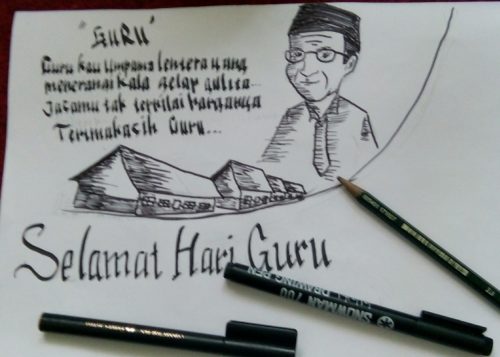 "GURU"
Guru kau umpama lentera yang
menerangi kala gelap gulita...
Jasamu tak ternilai harganya
Terimakasih Guru...
Selamat Hari Guru
SNOWMAN 700
DRAWING PEN